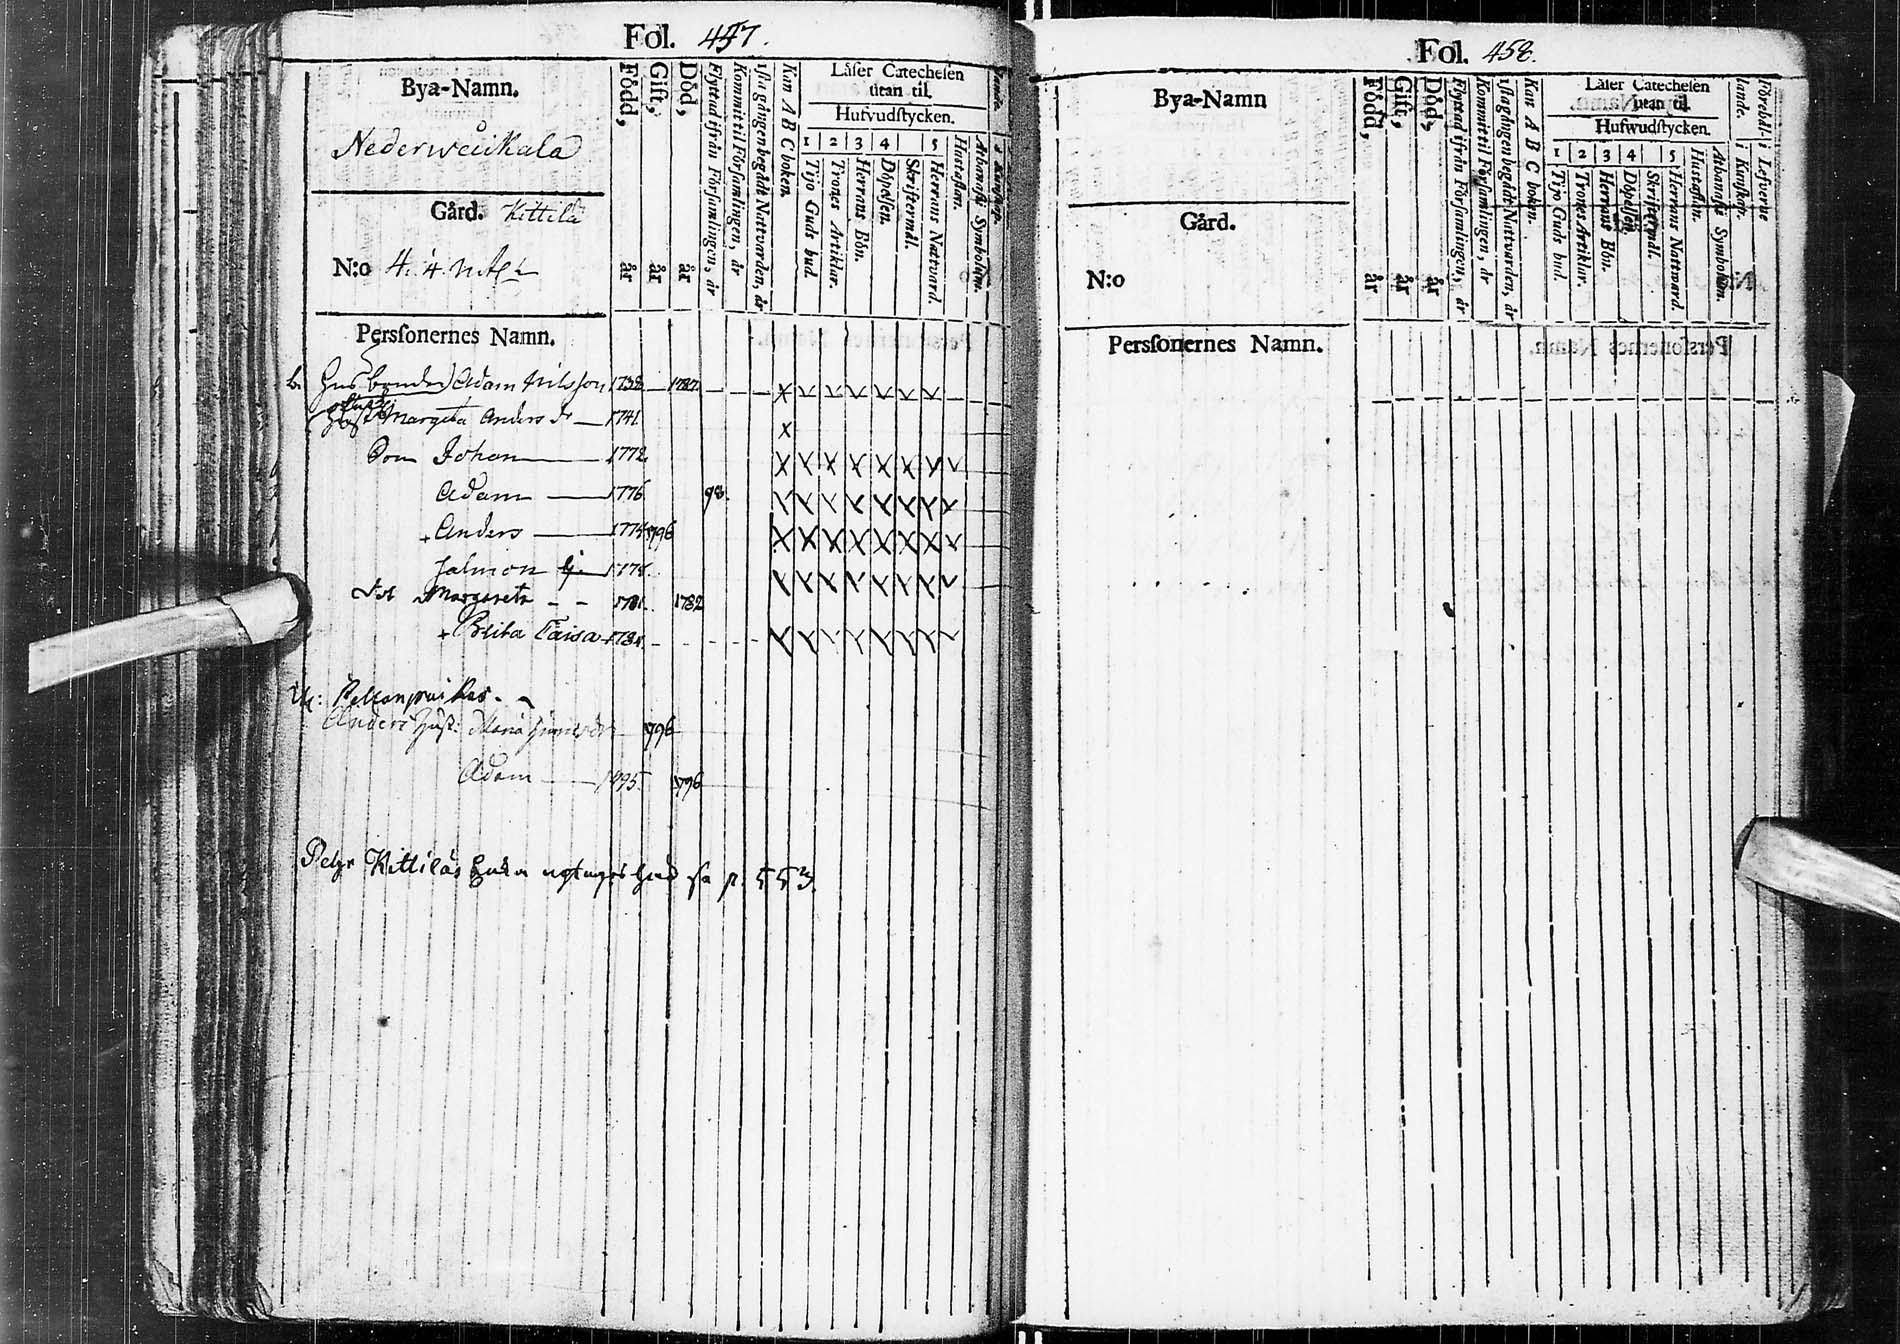 Fol. 457.
Bya-Namn.
Nederweuikala
Gård. Kittilä
N:o 4. 4.
Född, år
Gift, år
Död, år
Flyttad ifrån Församlingen, år
Kommit til Församlingen, år
1sta gången begådt Nattvarden, år
Kan A B C boken.
Läser Catechesen
utan til.
Hufvudstycken.
1 2 3 4 5
Tijo Guds bud.
Trones Artiklar.
Herrans Bön.
Döpelsen.
Skriftermål.
Herrans Nattvard.
Hustaflan.
Athanasii Symbolum.
Personernes Namn.
b. Husbonden Adam Nilsson 1738 1787
Margeta Anders dr 1741
Son Johan 1772
Adam 1776 98.
+ Anders 1774 1796
Salmon 1778.
dot Margareta - - 1781. 1782
+ Brita Caisa 1784.
Anders Hust: Maria 1796
Adam 1795 1796
Petzr Kittiläs p. 553.
Fol. 458.
Bya-Namn
Gård.
N:o
Personernes Namn.
Född, år
Gift, år
Död, år
Flyttad ifrån Församlingen, år
Kommit til Församlingen, år
1sta gången begådt Nattvarden, år
Kan A B C boken.
Läser Catechesen
utan til.
Hufwudstycken.
1 2 3 4 5
Tijo Guds bud.
Trones Artiklar.
Herrans Bön.
Döpelsen.
Skriftermål.
Herrans Nattvard
Hustaflan.
Athanasii Symbolum.
i Kunskap.
Förehåll- i Lefverne
lande.